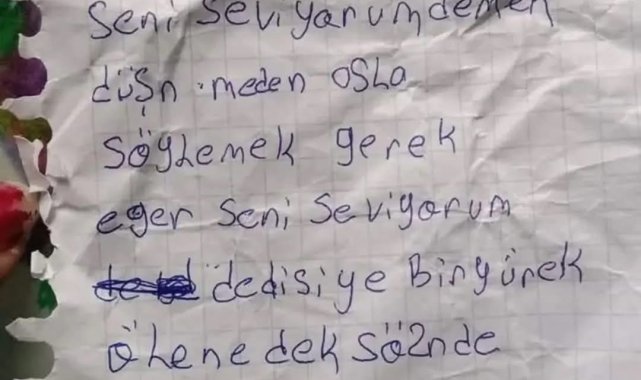 Seni Seviyorumdemek
düşn meden osla
söylemek gerek
eger seni seviyorum
dedisiye Biryürek
ölene dek söznde